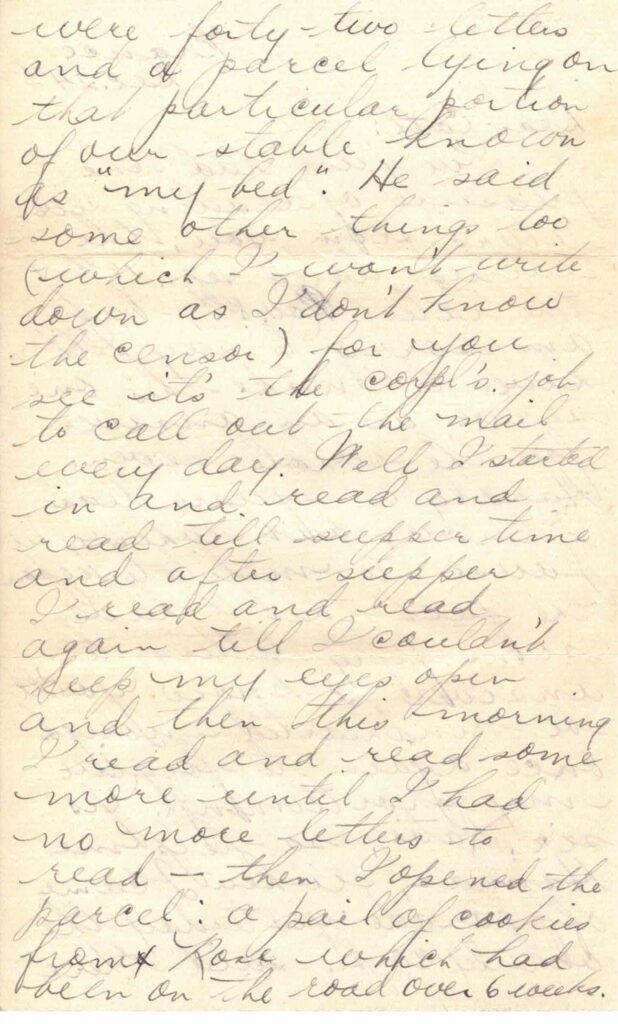 were forty-two letters
and a parcel lying on
that particular portion
of our stable known
as "my bed". He said
some other things too
(which I won't write
down as I don't know
the censor) for you
see it's the corpl's. job
to call out the mail
every day. Well I started
in and read and
read till supper time
and after supper
I read and read
again till I couldn't
keep my eyes open
and then this morning
I read and read some
more until I had
no more letters to
read – then I opened the
parcel: a pail of cookies
from Rose which had
been on the road over 6 weeks.